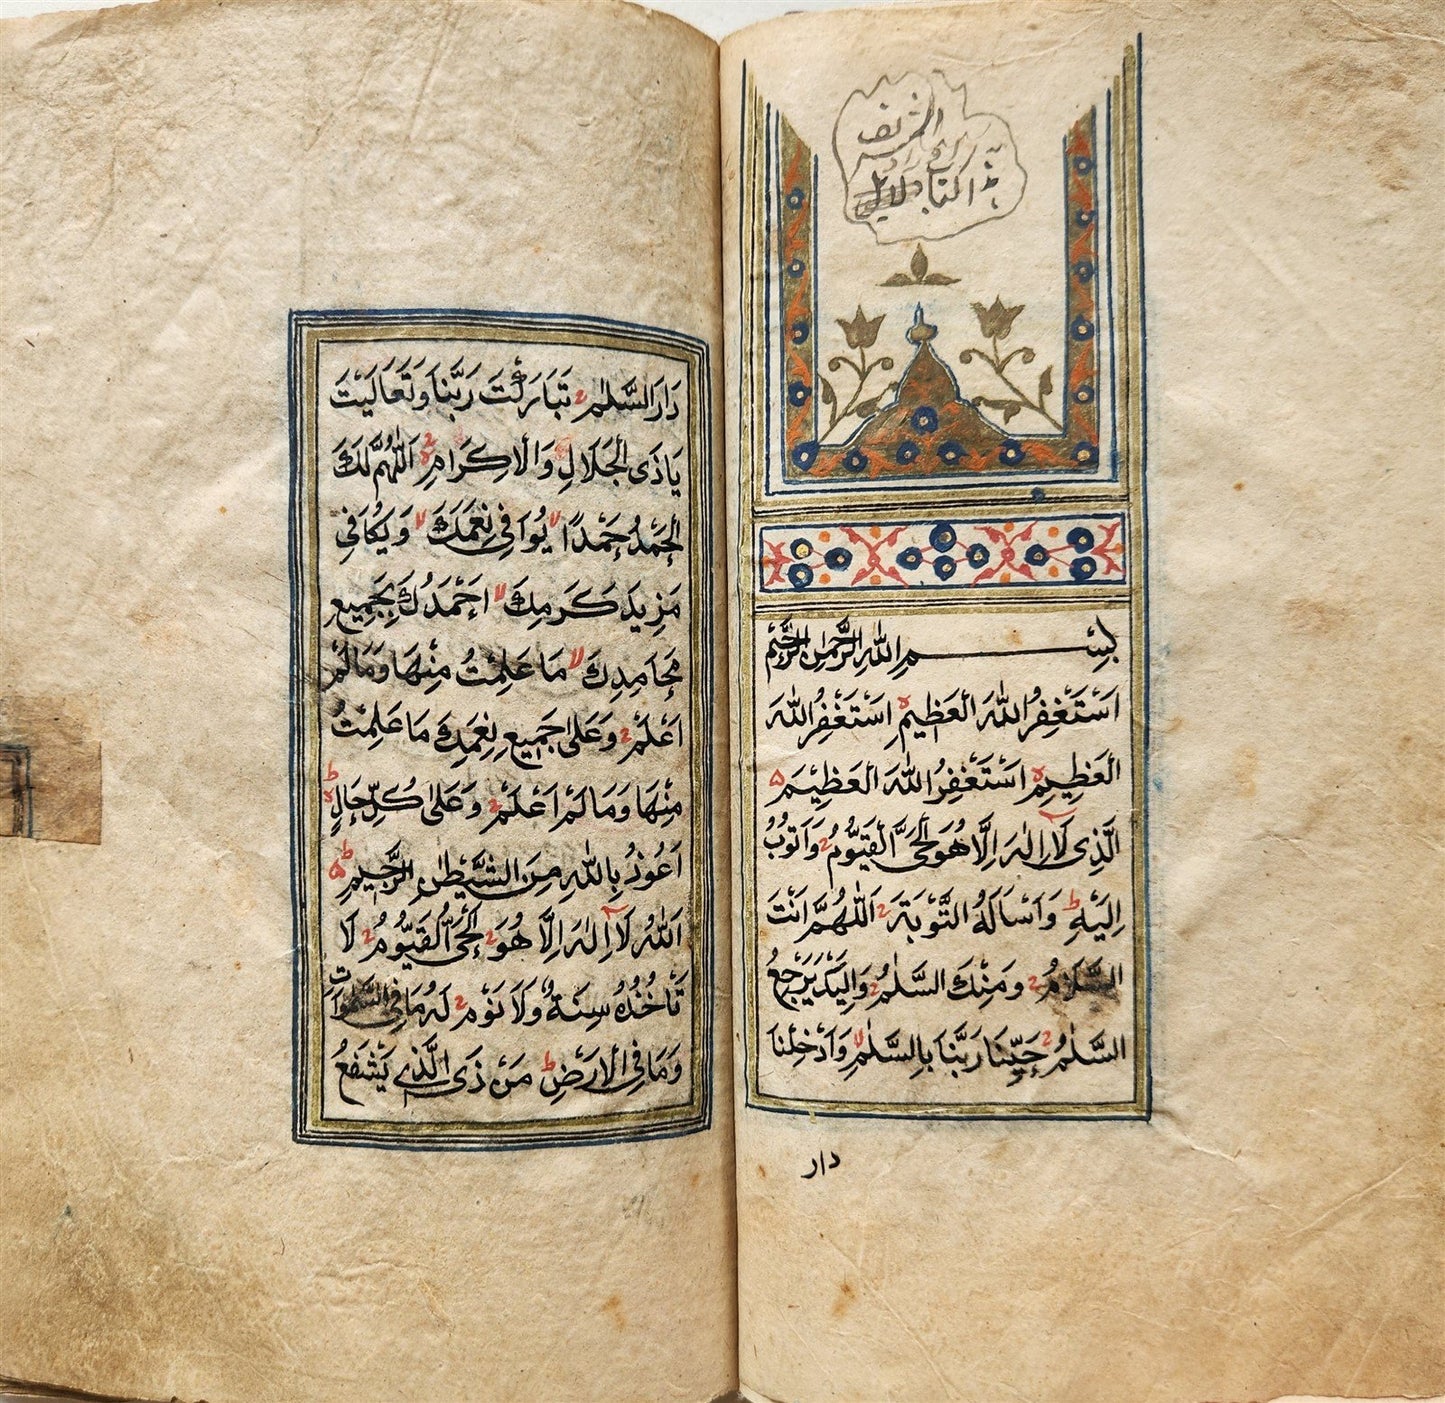 هذا الكتاب دلايل
الشريف
بِسْمِ اللّٰهِ الرَّحْمٰنِ الرَّحِيْمِ
اَسْتَغْفِرُ اللّٰهَ الْعَظِيْمَ اَسْتَغْفِرُ اللّٰهَ
الْعَظِيْمِ اَسْتَغْفِرُ اللّٰهَ الْعَظِيْمَ
الَّذِى لَا اِلٰهَ اِلَّا هُوَ الْحَىَّ الْقَيُّوْمُ وَاَتُوبُ
اِلَيْهِ وَاَسْاَلُهُ التَّوْبَةَ اَللّٰهُمَّ اَنْتَ
السَّلَامُ وَمِنْكَ السَّلٰمُ وَاِلَيْكَ يَرْجِعُ
السَّلٰمُ حَيِّنَا رَبَّنَا بِالسَّلٰمِ وَاَدْخِلْنَا
دار
دَارَ السَّلٰمِ تَبَارَكْتَ رَبَّنَا وَتَعَالَيْتَ
يَاذَى الْجَلَالِ وَالْاِكْرَامِ اَللّٰهُمَّ لَكَ
الْحَمْدُ حَمْدًا يُوَافِى نِعَمَكَ وَيُكَافِى
مَزِيدَ كَرَمِكَ اَحْمَدُكَ بِجَمِيعِ
مَحَامِدِكَ مَا عَلِمْتُ مِنْهَا وَمَا لَمْ
اَعْلَمْ وَعَلٰى جَمِيعِ نِعَمِكَ مَا عَلِمْتُ
مِنْهَا وَمَا لَمْ اَعْلَمْ وَعَلٰى كُلِّ حَالٍ
اَعُوْذُ بِاللّٰهِ مِنَ الشَّيْطٰنِ الرَّجِيمِ
اَللّٰهُ لَا اِلٰهَ اِلَّا هُوَ الْحَىُّ الْقَيُّوْمُ لَا
تَأْخُذُهُ سِنَةٌ وَلَا نَوْمٌ لَهُ مَا فِى السَّمٰوَاتِ
وَمَا فِى الْاَرْضِ مَنْ ذَى الَّذِى يَشْفَعُ